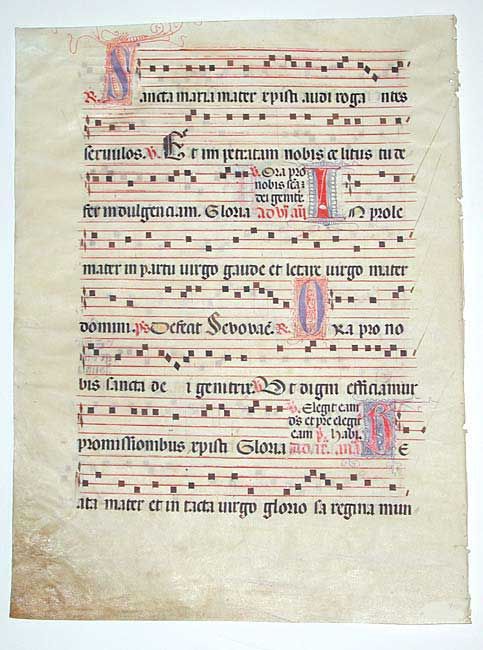 R. Sancta maria mater xpisti audi roga ntes
servulos. V. Et impetratam nobis celitus tu de
V. Ora pro
nobis sca
dei genitr.
fer indulgenciam. Gloria ad vi an In prole
mater in partu virgo gaude et letare virgo mater
domini. ps Defecit Sevovae. R. Ora pro no
bis sancta de i genitrix V. Ut digni efficiamur
V. Elegit eam
ds et pre elegit
eam p. habi.
promissionibus xpisti Gloria Be
ata mater et in tacta virgo glorio sa regina mun